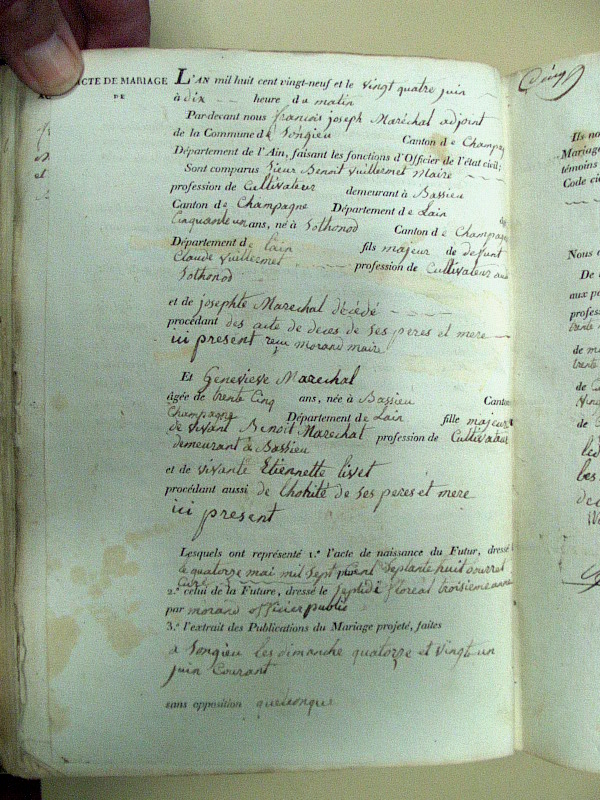 ACTE DE MARIAGE
DE
L'AN mil huit cent vingt-neuf et le vingt quatre juin
à dix heure du matin
Par-devant nous françois joseph Maréchal adjoint
de la Commune de Songieu Canton de Champag
Département de l'Ain, faisant les fonctions d'Officier de l'état civil;
Sont comparus Sieur Benoit Vuillermet Maire
profession de Cultivateur demeurant à Bassieu
Canton de Champagne Département de Lain
Cinquante un ans, né à Sothonod Canton de Champagne
Département de Lain fils majeur de defunt
Claude Vuillermet profession de Cultivateur
Sothonod
et de josephte Marechal décédé
procédant des acte de deces de ses peres et mere
ici present reçu morand maire
Et Genevieve Marechal
âgée de trente Cinq ans, née à Bassieu Canton
Champagne Département de Lain fille majeure
de vivant Benoit Marechal profession de Cultivateur
demeurant à Bassieu
et de vivante Etiennette livet
procédant aussi de Lhotrité de ses peres et mere
ici present
Lesquels ont représenté 1.º l'acte de naissance du Futur, dressé
le quatorze mai mil sept cent septante huit
Curé
2.º celui de la Future, dressé le septidi floreal troisieme anne
par morand officier public
3.º l'extrait des Publications du Mariage projeté, faites
a Songieu les dimanche quatorze et vingt un
juin Courant
sans opposition quelconque
Ils no
Mariage
témoins
Code civ
Nous
De
aux po
profess
trente
de m
trente
de
Ving
de
led
les
de